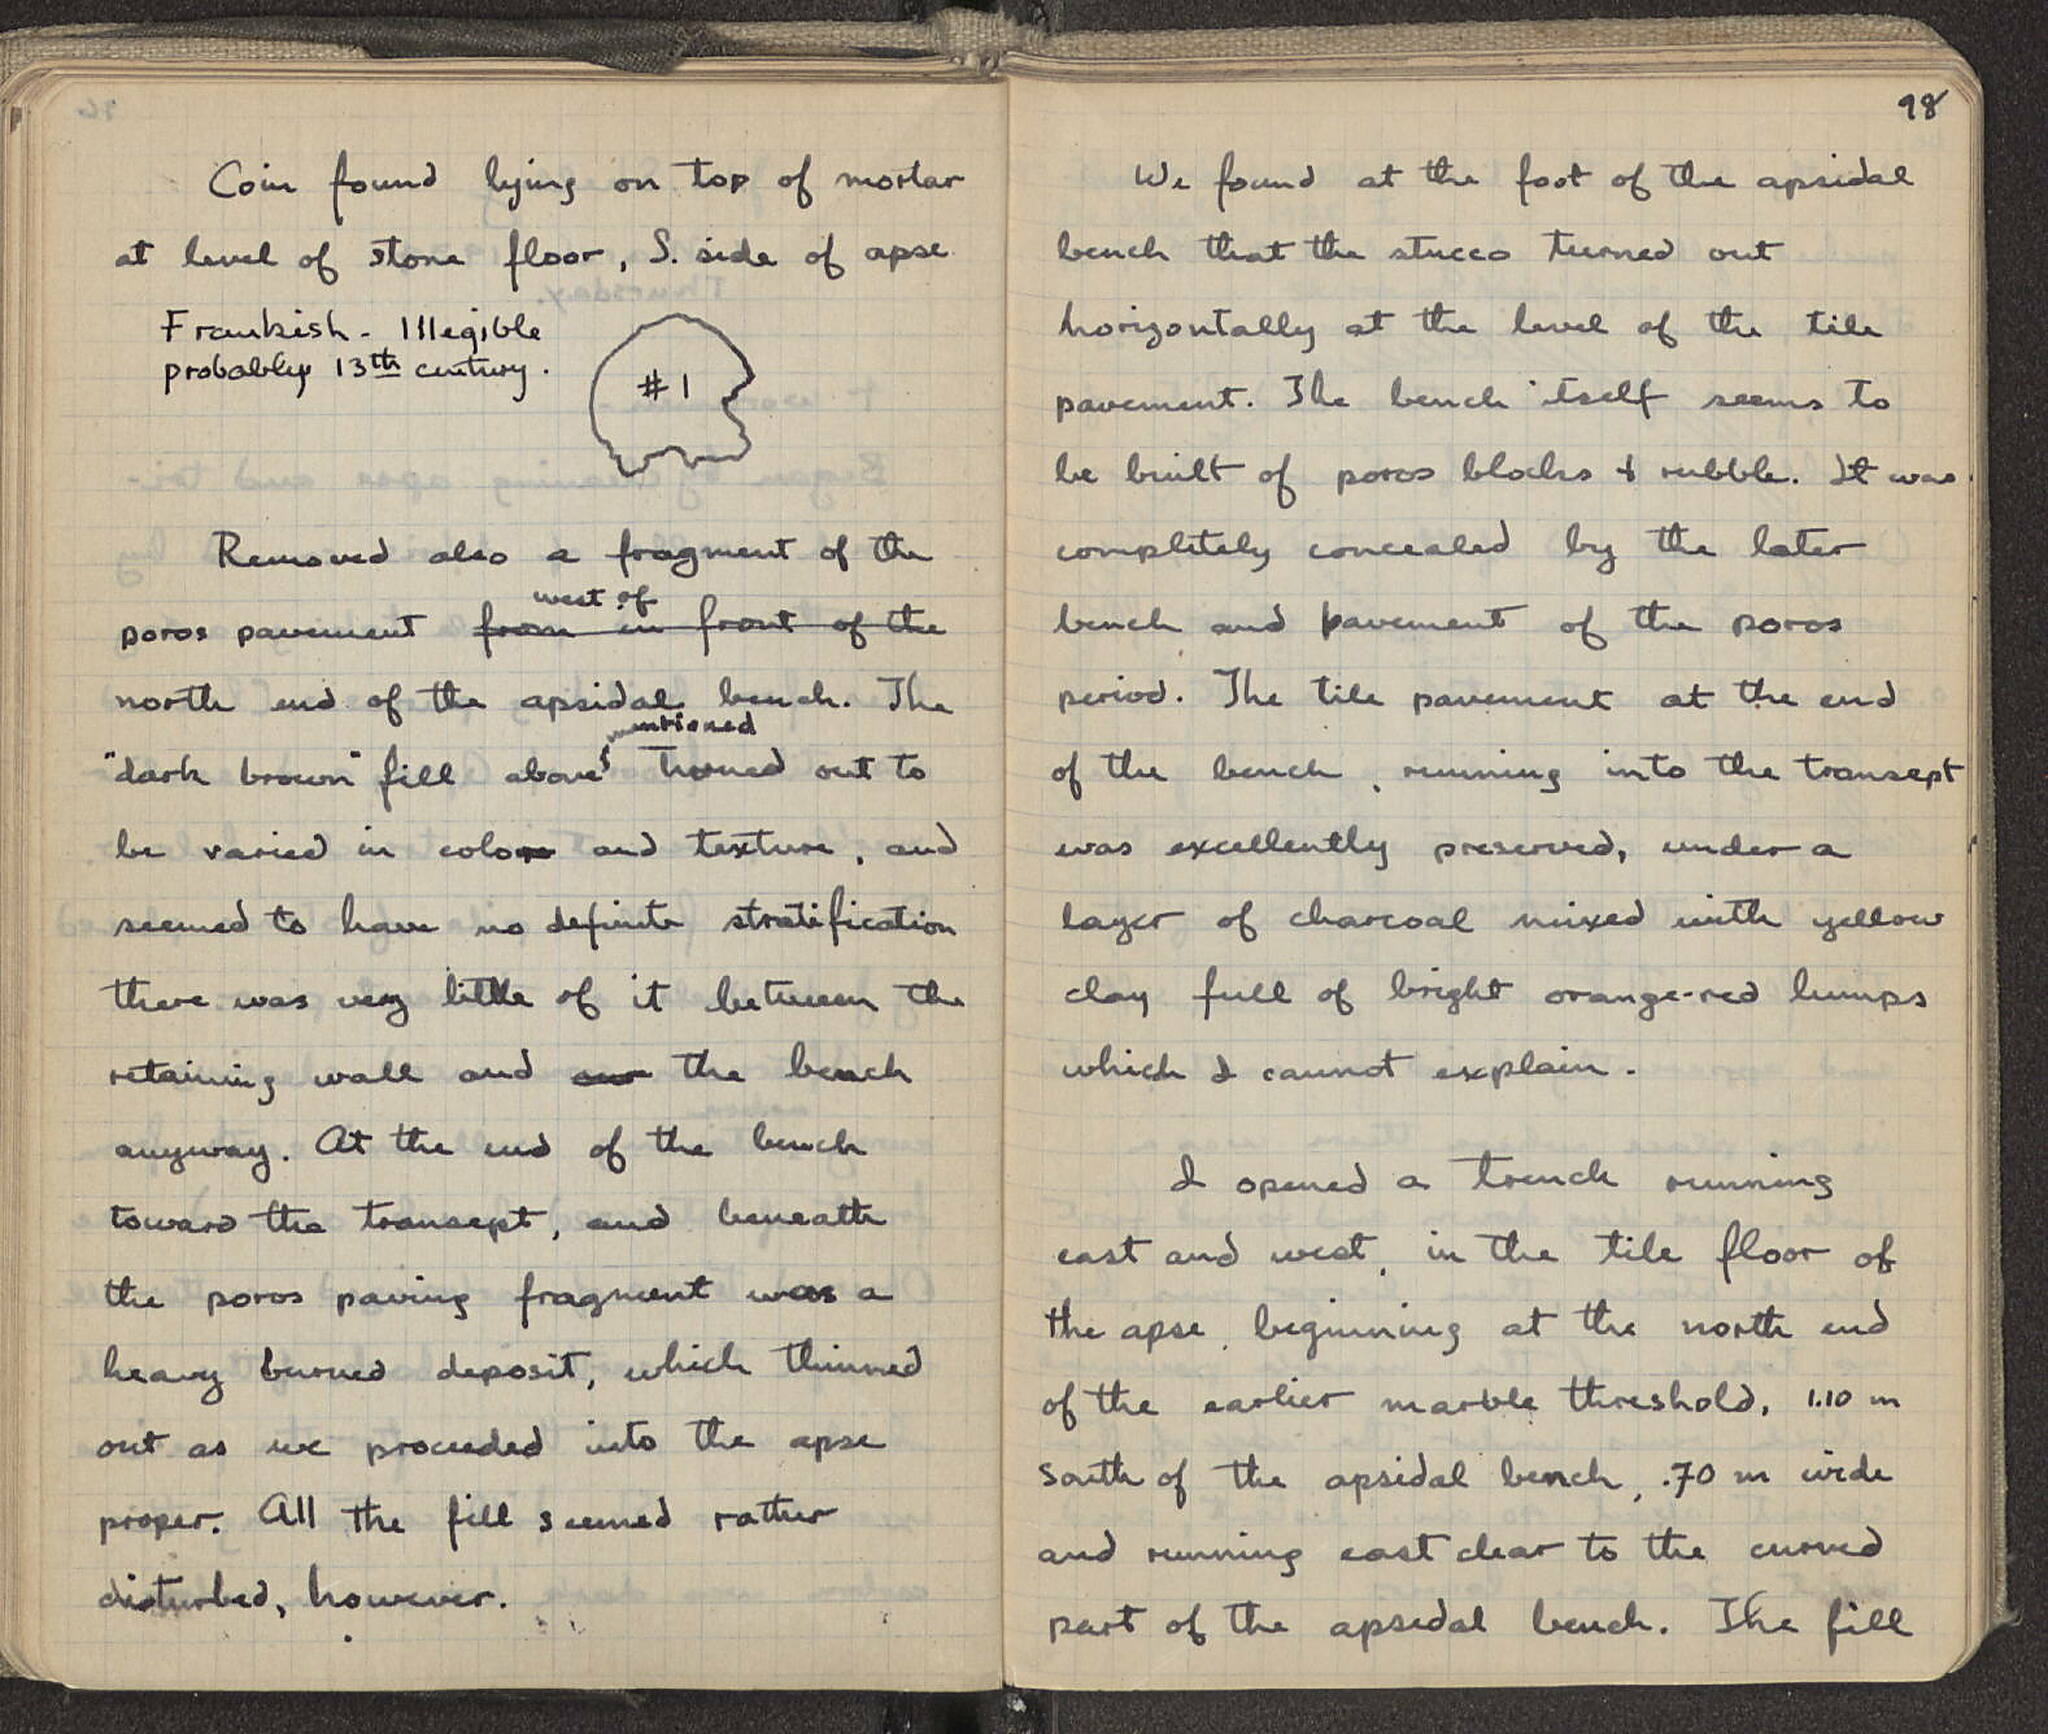 Coin found lying on top of mortar
at level of stone floor, S. side of apse
Frankish - Illegible
probably 13th century.
#1
Removed also a fragment of the
west of
poros pavement from in front of the
north end of the apsidal bench. The
mentioned
"dark brown" fill above turned out to
be varied in color and texture, and
seemed to have no definite stratification
there was very little of it between the
retaining wall and the bench
anyway. At the end of the bench
toward the transept, and beneath
the poros paving fragment was a
heavy burned deposit, which thinned
out as we proceeded into the apse
proper. All the fill seemed rather
disturbed, however.
98
We found at the foot of the apsidal
bench that the stucco turned out
horizontally at the level of the tile
pavement. The bench itself seems to
be built of poros blocks & rubble. It was
completely concealed by the later
bench and pavement of the poros
period. The tile pavement at the end
of the bench, running into the transept
was excellently preserved, under a
layer of charcoal mixed with yellow
clay full of bright orange-red lumps
which I cannot explain.
I opened a trench running
east and west, in the tile floor of
the apse, beginning at the north end
of the earlier marble threshold, 1.10 m
south of the apsidal bench, .70 m wide
and running east clear to the curved
part of the apsidal bench. The fill